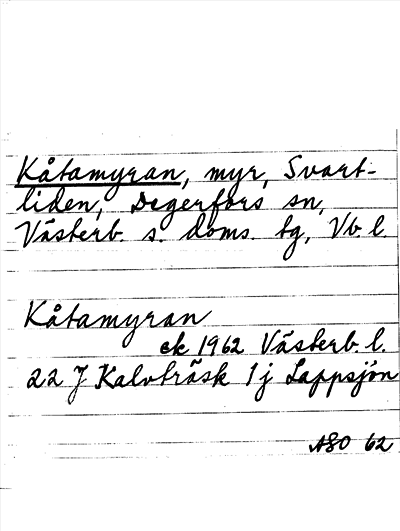 Kåtamyran, myr, Svart-
liden, Degerfors sn,
Västerb. s. doms. tg, Vb l.
Kåtamyran
ek 1962 Västerb. l.
22 J Kalvträsk 1 j Lappsjön
ASO 62